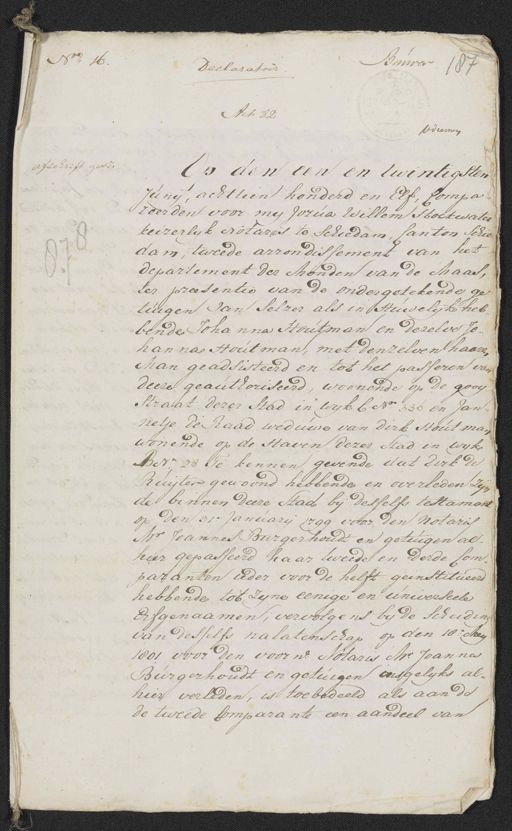 Nro 16.
Declaratoir
187
Art 22
afschrift gest
878
Op den een en twintigsten
Junij, achttien honderd en Elf, Compa
reerden voor mij Josua Willem
keizerlijk Notaris te Schiedam, Canton Schie
dam, tweede arrondissement van het
departement der Monden van de Maas,
ter presentie van de ondergetekende ge
tuigen Jan Selzer als in Huwelijk heb
bende Johanna Houtman en dezelve Jo
hanna Houtman, met denzelven haare
Man geadsisteerd en tot het passeren
deeze geauthoriseerd, woonende op de
Straat dezer Stad in wijk C No 330 en Jan
netje de Raad weduwe van Dirk Houtman
wonende op de Haven dezer Stad in wijk
B No 28 Te kennen gevende dat Dirk de
Ruijter gewoond hebbende en overleden zijn
de binnen deeze Stad bij deszelfs testament
op den 21 January 1799 voor den Notaris
Mr Joannes Burgerhoudt en getuigen al
hier gepasseerd haar tweede en derde Com
paranten ieder voor de helft geinstitueerd
hebbende tot zijne eenige en universeele
Erfgenaamen, vervolgens bij de Scheiding
van deszelfs nalatenschap op den 10e May
1801 voor den voorn. Notaris Mr Joannes
Burgerhoudt en getuigen insgelijks al-
hier verleden, is toebedeeld als aan de
de tweede Comparante een aandeel van